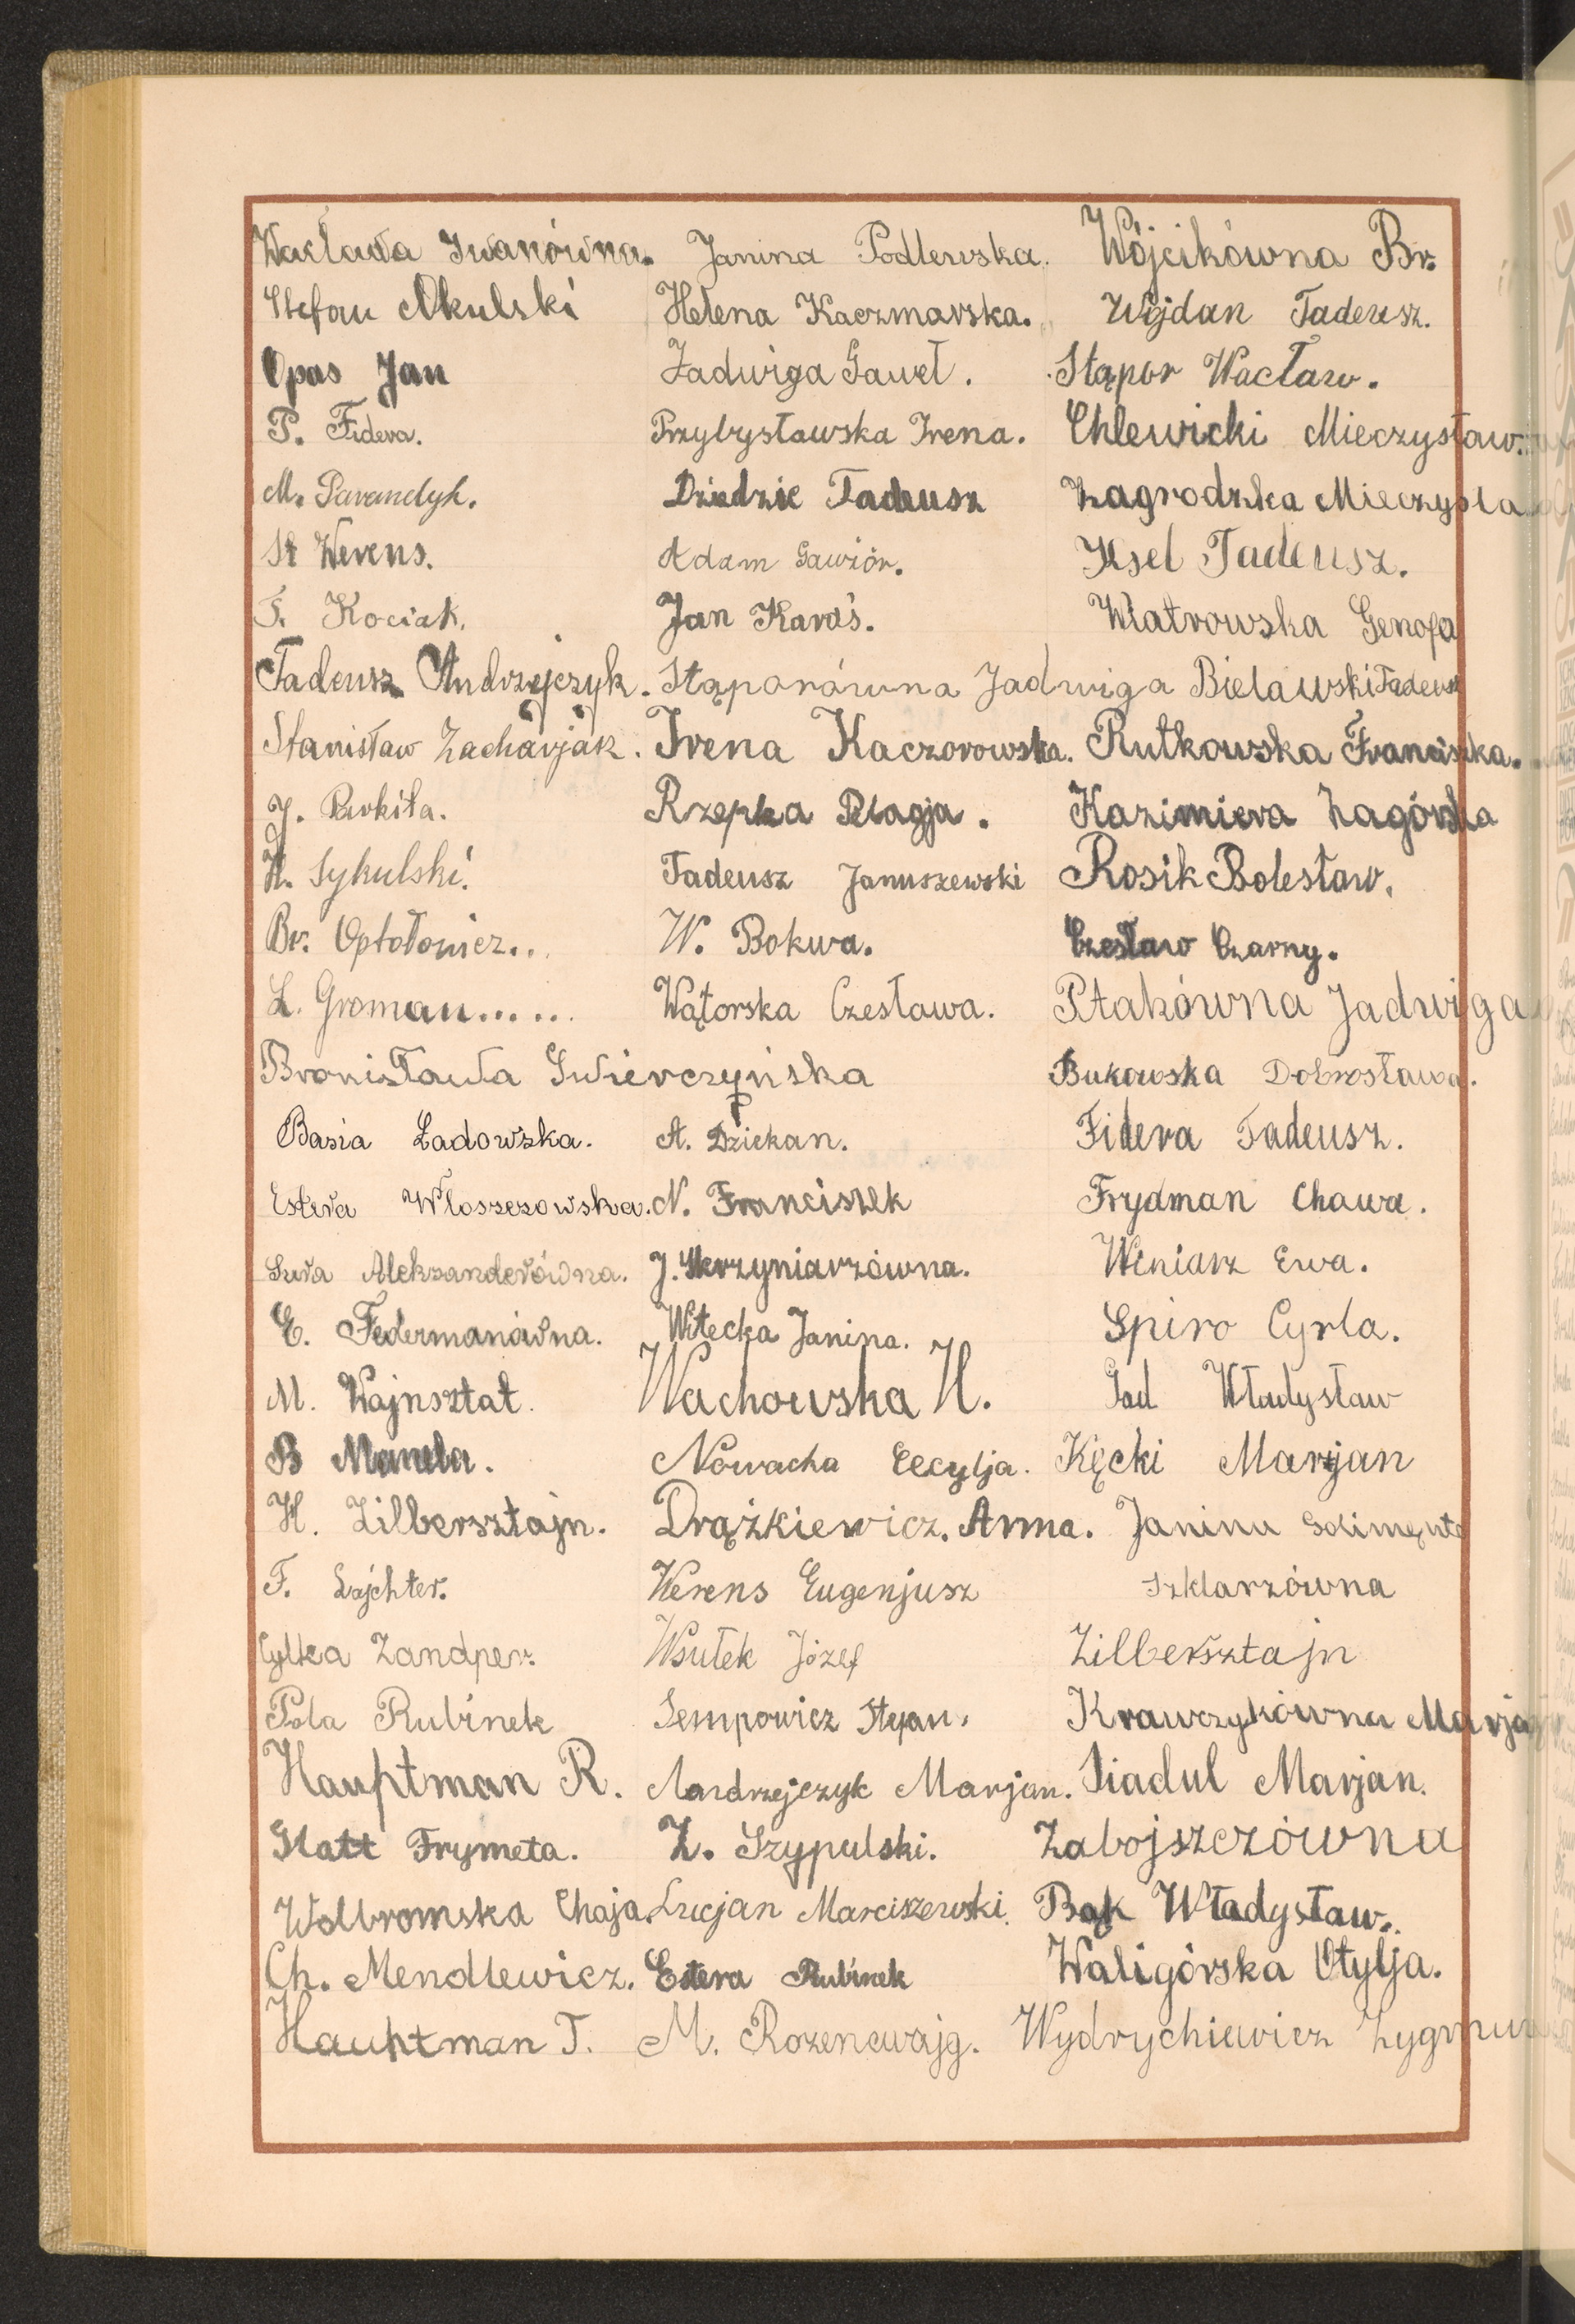 Wacława Iwanówna. Janina Podlewska. Wójcikówna Br.
Stefan Okulski Helena Kaczmarska. Wójdan Tadeusz.
Opas Jan Jadwiga Gaweł. Stąpor Wacław.
P. Fidera. Przybysławska Irena. Chlewicki Mieczysław.
M. Parandyk. Dziedzic Tadeusz Zagrodzka Mieczysła
St Werens. Adam Gawior. Ksel Tadeusz.
T. Kociak. Jan Karaś. Wiatrowska Genofa
Tadeusz Andrzejczyk. Stąporówna Jadwiga Bielawski Tadeusz
Stanisław Zacharjak. Irena Kaczorowska. Rutkowska Franciszka.
J. Parkiła. Rzepka Pelagja. Kazimiera Zagórska
H. Sykulski. Tadeusz Januszewski Rosik Bolesław.
Br. Optołowicz... W. Bokwa. Czesław Czarny.
L. Groman...... Wątorska Czesława. Ptakówna Jadwiga
Bronisława Świerczyńska Bukowska Dobrosława.
Basia Ładowska. A. Dziekan. Fidera Tadeusz.
Estera Włoszczowska. N. Franciszek Frydman Chawa.
Sura Aleksanderówna. J. Skrzyniarzówna. Winiarz Ewa.
E. Federmanówna. Witecka Janina. Spiro Cyrla.
M. Wajnsztat. Wachowska H. Gad Władysław
B Manela. Nowacka Cecylja. Kęcki Marjan
H. Zilbersztajn. Drążkiewicz. Anna. Janina
F. Lajchter. Werens Eugenjusz Szklarzówna
Cylka Zandper. Wsułek Józef Zilbersztajn
Pola Rubinek Sempowicz Stefan. Krawczykówna Marja
Hauptman R. Andrzejczyk Marjan. Siadul Marjan.
Glatt Frymeta. Z. Szypulski. Zabojszczówna
Wolbromska Chaja. Lucjan Marciszewski. Bąk Władysław.
Ch. Mendlewicz. Estera Rubinek Waligórska Otylja.
Hauptman T. M. Rozencwajg. Wydrychiewicz Zygmun